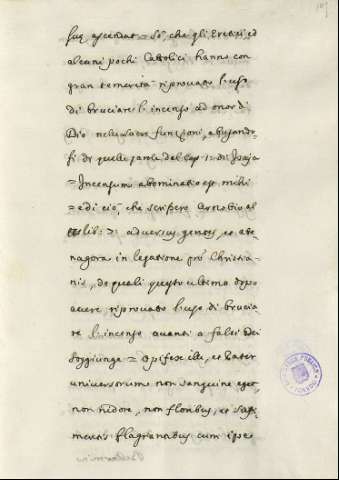 suę ascendat = Sò, che gli Eretici ed
alcuni pochi Cattolici hanno con
gran temerità riprovato l'uso
di bruciare l'incenso ad onor di
Dio nelle sacre funzioni, abusando-
si di quelle parole del Cap. 1: di Isaja
= Incensum abominatio est mihi
= e di ciò, che scripsere Arnobio al
lib: 7: adversus gentes, et Ate-
nagora in legatione pro Christia-
nis, de quali questo ultimo dopo
avere riprovato l'uso di brucia-
re l'incenso avanti a falsi Dei
soggiunge = Opifex ille, et Pater
universorum non sanguine eget,
non nidore, non floribus, et
flagrantibus cum ipse